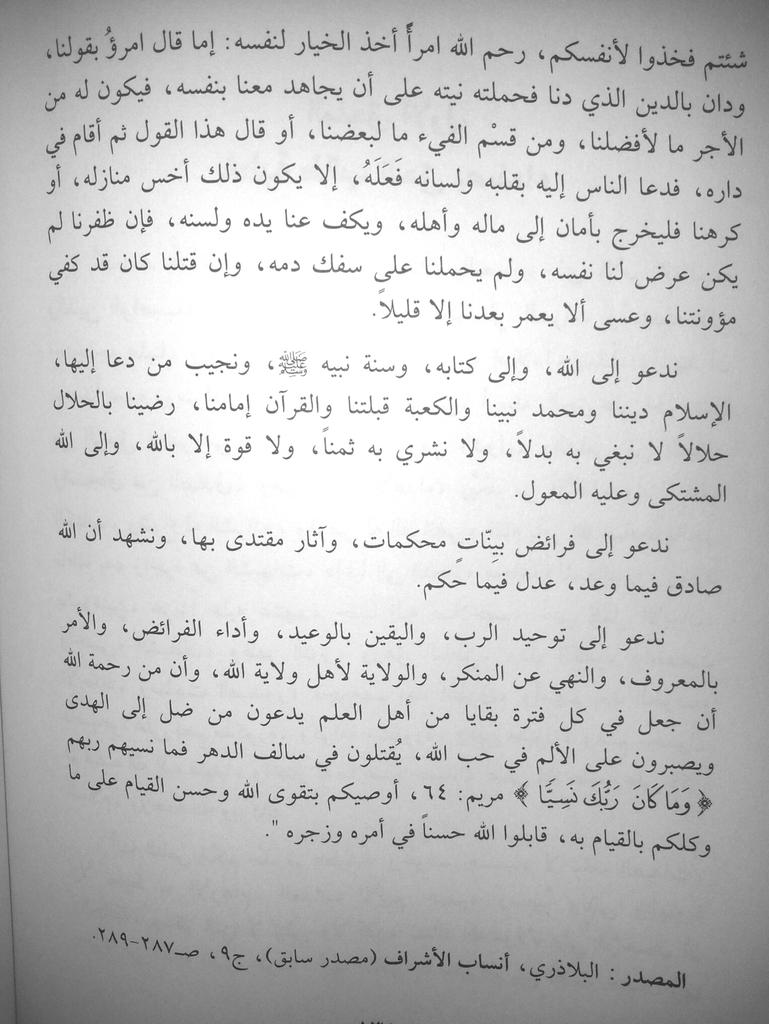 شئتم فخذوا لأنفسكم، رحم الله امرأً أخذ الخيار لنفسه: إما قال امرؤُ بقولنا،
ودان بالدين الذي دنا فحملته نيته على أن يجاهد معنا بنفسه، فيكون له من
الأجر ما لأفضلنا، ومن قسْم الفيء ما لبعضنا، أو قال هذا القول ثم أقام في
داره، فدعا الناس إليه بقلبه ولسانه فَعَلَهُ، إلا يكون ذلك أخس منازله، أو
كرهنا فليخرج بأمان إلى ماله وأهله، ويكف عنا يده ولسنه، فإن ظفرنا لم
يكن عرض لنا نفسه، ولم يحملنا على سفك دمه، وإن قتلنا كان قد كفي
مؤونتنا، وعسى ألا يعمر بعدنا إلا قليلاً.
ندعو إلى الله، وإلى كتابه، وسنة نبيه ﷺ، ونجيب من دعا إليها،
الإسلام ديننا ومحمد نبينا والكعبة قبلتنا والقرآن إمامنا، رضينا بالحلال
حلالاً لا نبغي به بدلاً، ولا نشري به ثمناً، ولا قوة إلا بالله، وإلى الله
المشتكى وعليه المعول.
ندعو إلى فرائض بيِنّاتٍ محكمات، وآثار مقتدى بها، ونشهد أن الله
صادق فيما وعد، عدل فيما حكم.
ندعو إلى توحيد الرب، واليقين بالوعيد، وأداء الفرائض، والأمر
بالمعروف، والنهي عن المنكر، والولاية لأهل ولاية الله، وأن من رحمة الله
أن جعل في كل فترة بقايا من أهل العلم يدعون من ضل إلى الهدى
ويصبرون على الألم في حب الله، يُقتلون في سالف الدهر فما نسيهم ربهم
﴿وَمَا كَانَ رَبُّكَ نَسِيًّا﴾ مريم: ٦٤، أوصيكم بتقوى الله وحسن القيام على ما
وكلكم بالقيام به، قابلوا الله حسناً في أمره وزجره ".
المصدر : البلاذري، أنساب الأشراف (مصدر سابق)، ج٩، صـ٢٨٧-٢٨٩.